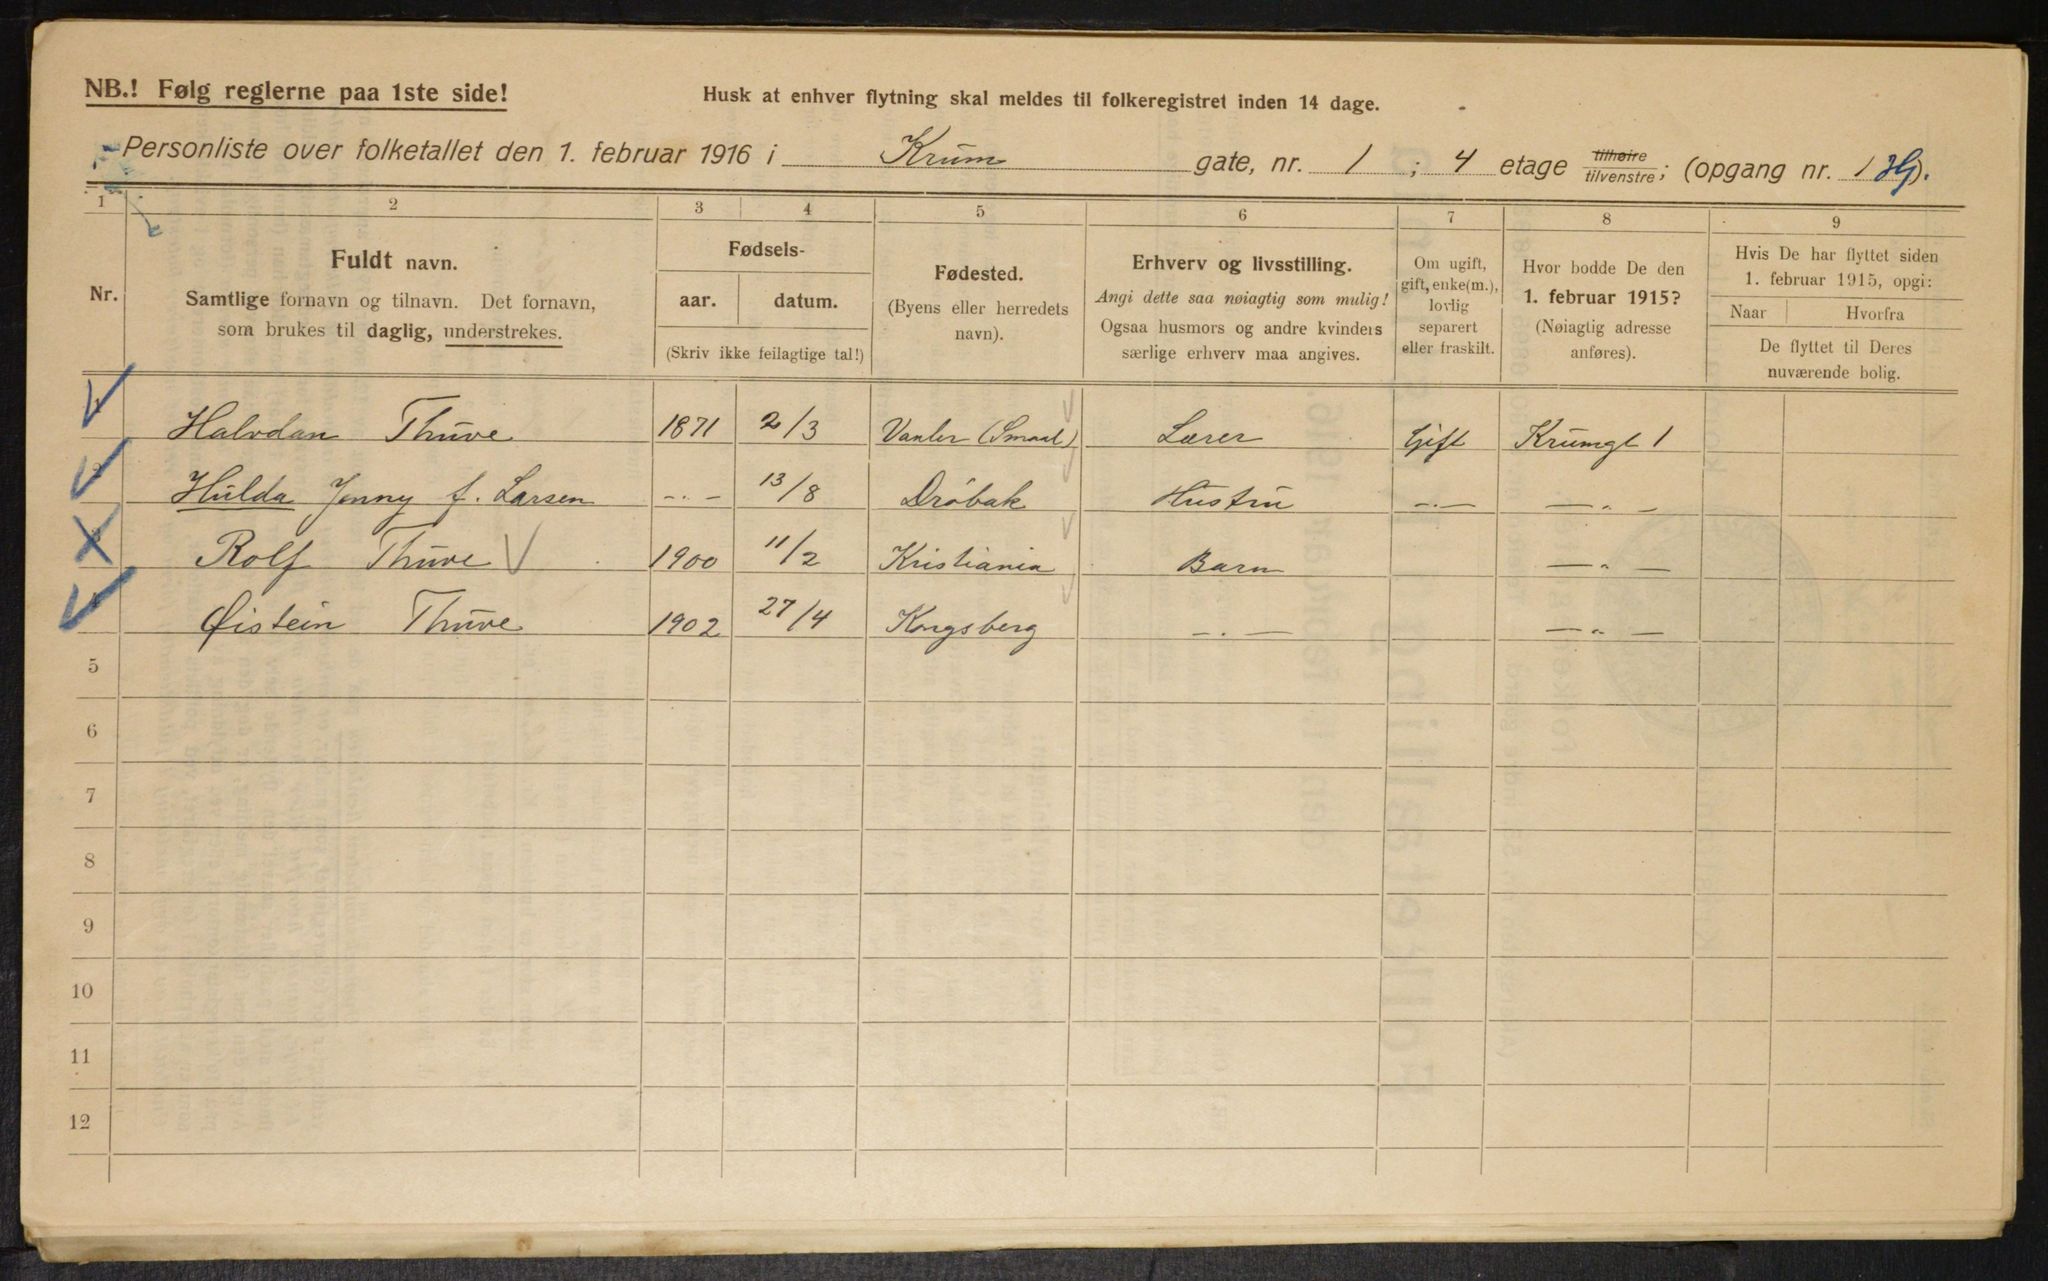 NB.! Følg reglerne paa 1ste side!
Husk at enhver flytning skal meldes til folkeregistret inden 14 dage.
Personliste over folketallet den 1. februar 1916 i Krum gate, nr. 1 ; 4 etage tilhøire tilvenstre; (opgang nr. 1 ).
1 2 3 4 5 6 7 8 9
Nr.
Fuldt navn.
Samtlige fornavn og tilnavn. Det fornavn,
som brukes til daglig, understrekes.
Fødsels-
aar. datum.
(Skriv ikke feilagtige tal!)
Fødested.
(Byens eller herredets
navn).
Erhverv og livsstilling.
Angi dette saa nøiagtig som mulig!
Ogsaa husmors og andre kvinders
særlige erhverv maa angives.
Om ugift,
gift, enke(m.),
lovlig
separert
eller fraskilt.
Hvor bodde De den
1. februar 1915?
(Nøiagtig adresse
anføres).
Hvis De har flyttet siden
1. februar 1915, opgi:
Naar Hvorfra
De flyttet til Deres
nuværende bolig.
Halvdan Thúve 1871 2/3 Vanler (Smaal) Lærer Gift Krumgt 1
Hulda Jenny f. Larsen -"- 13/8 Drøbak Hustru -"- -"-
Rolf Thúve 1900 11/2 Kristiania Barn -"-
Øistein Thúve 1902 27/4 Kongsberg -"- -"-
5
6
7
8
9
10
11
12